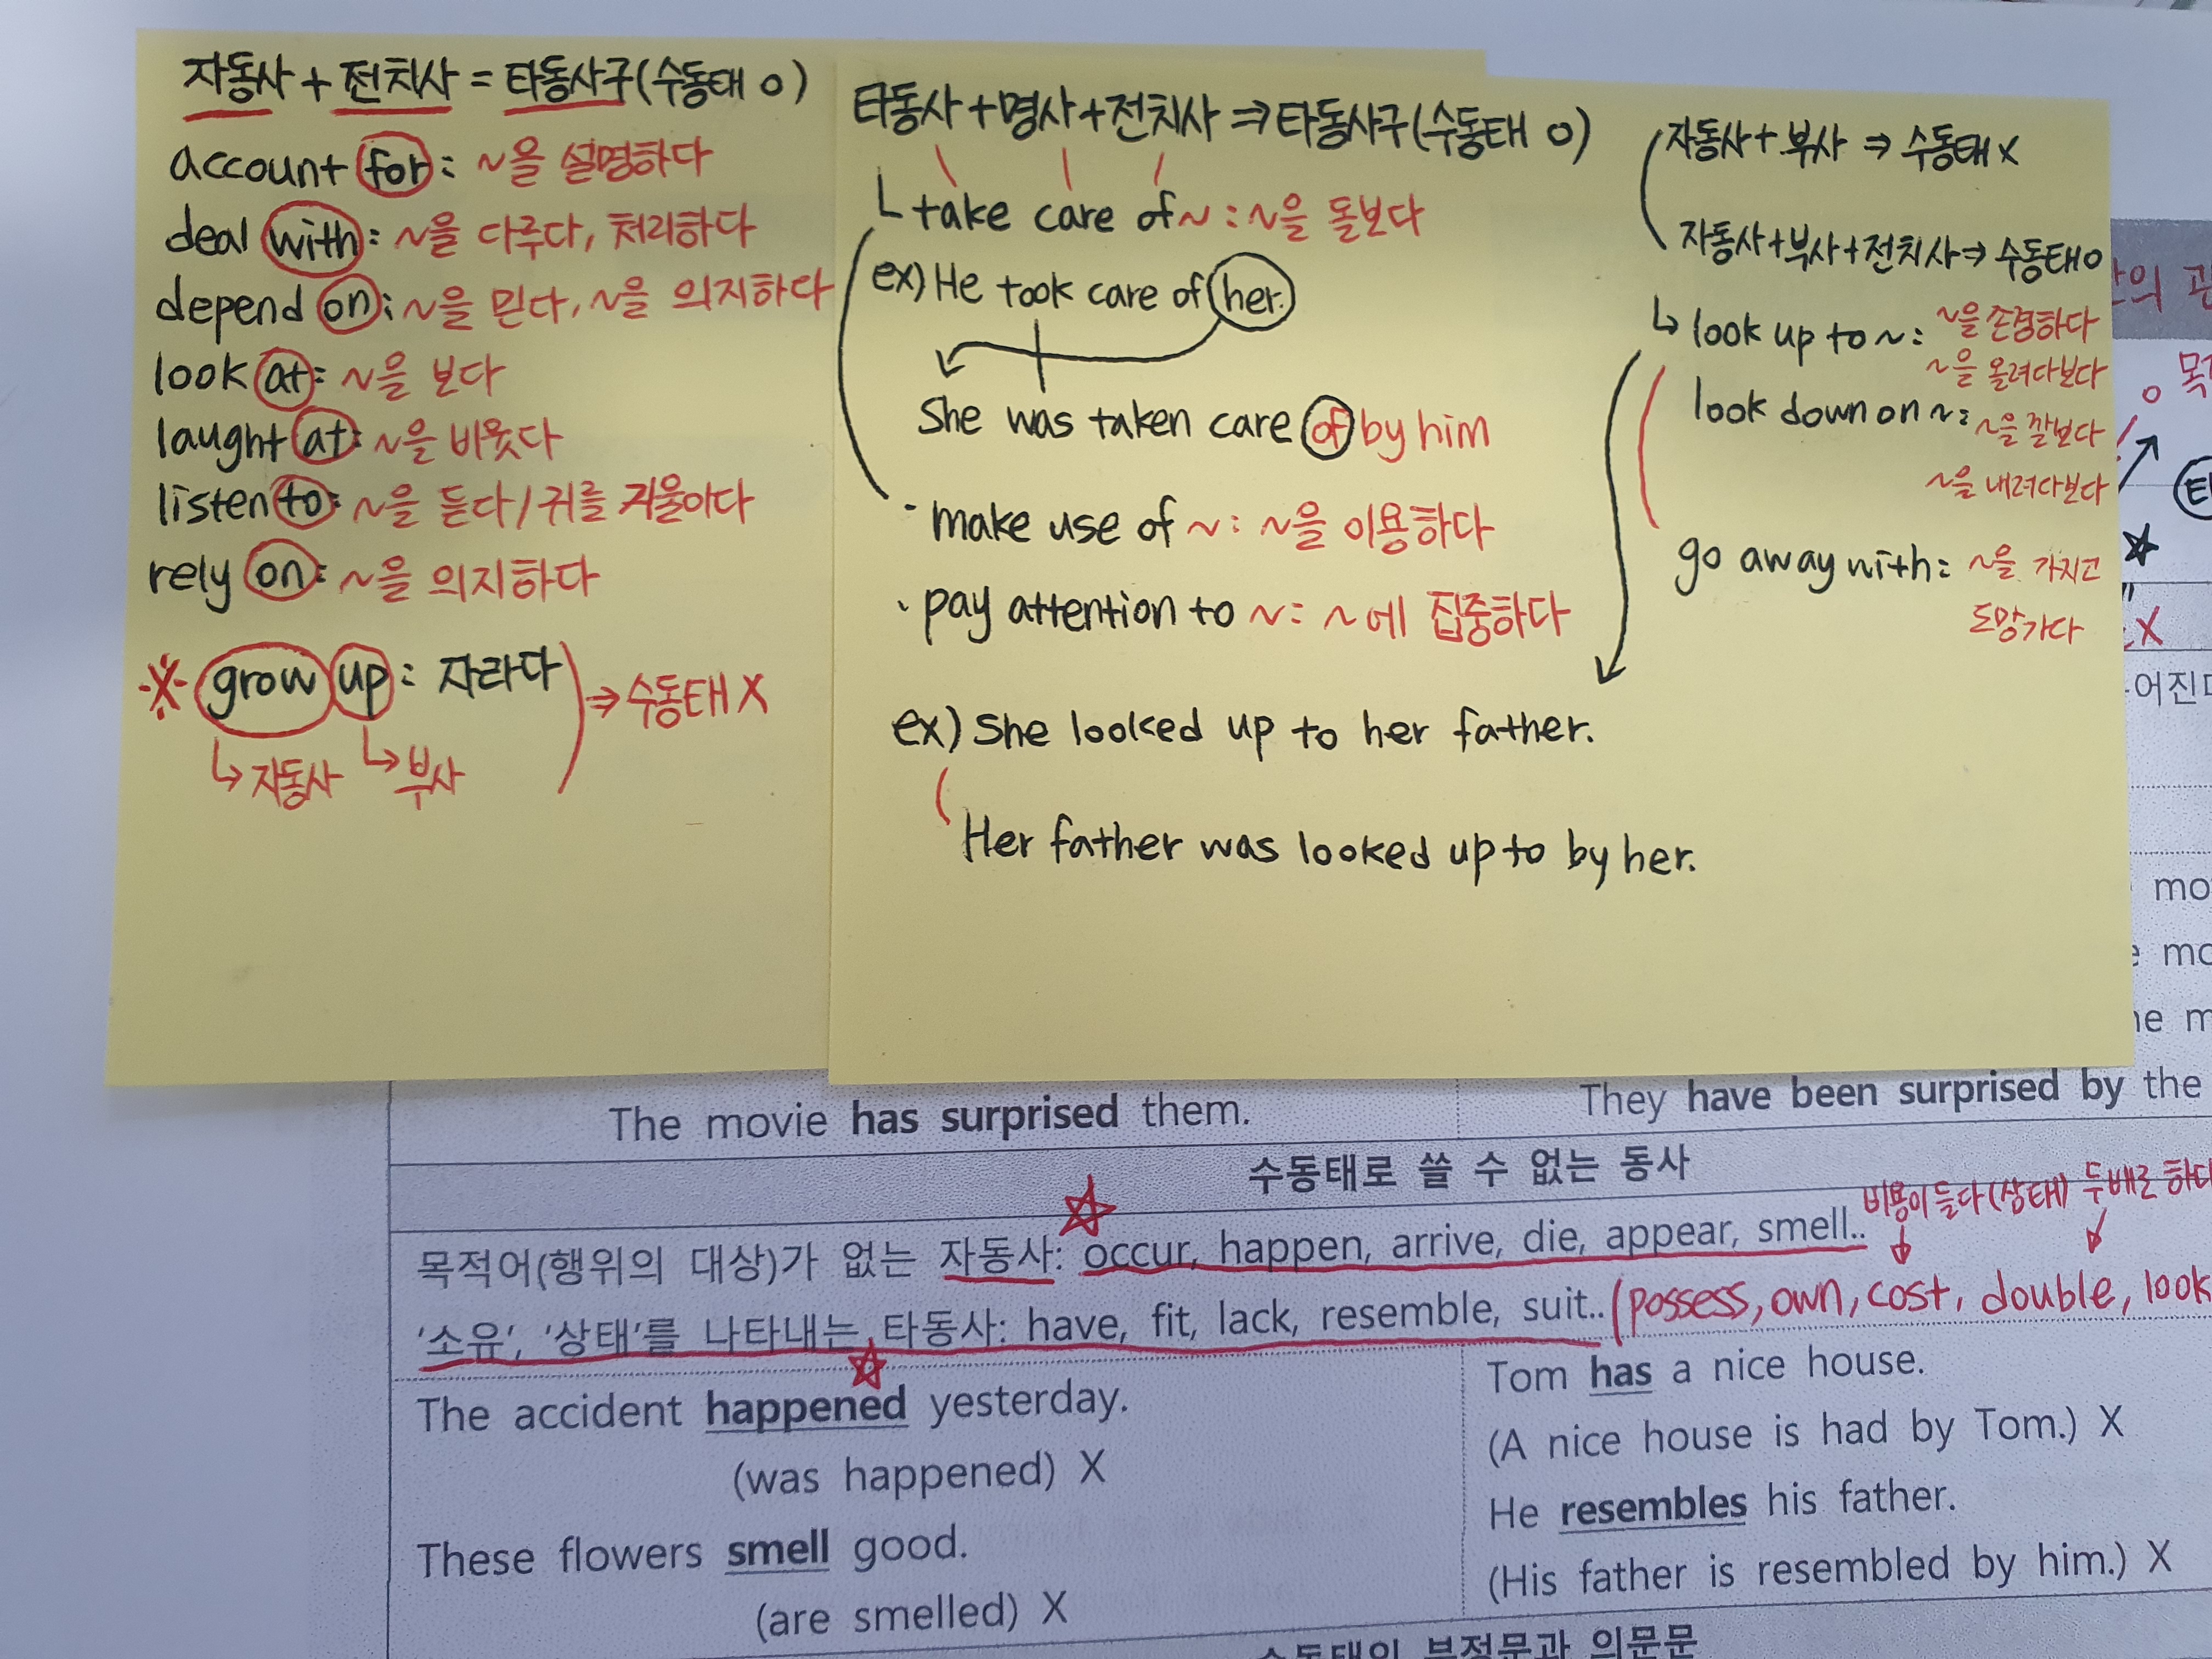 자동사 + 전치사 = 타동사구(수동태 O)
account for : ~을 설명하다
deal with : ~을 다루다, 처리하다
depend on : ~을 믿다, ~을 의지하다
look at : ~을 보다
laught at : ~을 비웃다
listen to : ~을 듣다 / 귀를 기울이다
rely on : ~을 의지하다
※ grow up : 자라다 ⇒ 수동태 X
↳ 자동사 ↳ 부사
타동사 + 명사 + 전치사 ⇒ 타동사구(수동태 O)
take care of ~ : ~을 돌보다
ex) He took care of her.
She was taken care of by him
· make use of ~ : ~을 이용하다
· pay attention to ~ : ~에 집중하다
ex) She looked up to her father.
Her father was looked up to by her.
자동사 + 부사 ⇒ 수동태 X
자동사 + 부사 + 전치사 ⇒ 수동태 O
↳ look up to ~ : ~을 존경하다
~을 올려다보다
look down on ~ : ~을 깔보다
~을 내려다보다
go away with : ~을 가지고
도망가다
The movie has surprised them.
They have been surprised by the
수동태로 쓸 수 없는 동사
비용이 들다 (상태) 두배로 하다
목적어(행위의 대상)가 없는 자동사: occur, happen, arrive, die, appear, smell..
'소유', '상태'를 나타내는 타동사: have, fit, lack, resemble, suit.. (possess, own, cost, double, look
The accident happened yesterday.
(was happened) X
These flowers smell good.
(are smelled) X
Tom has a nice house.
(A nice house is had by Tom.) X
He resembles his father.
(His father is resembled by him.) X
수동태의 부정문과 의문문